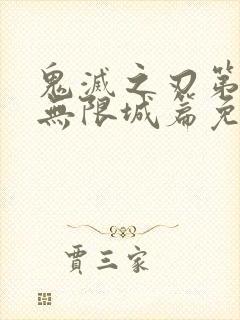 鬼滅之刃第
無限城篇免
賈三家